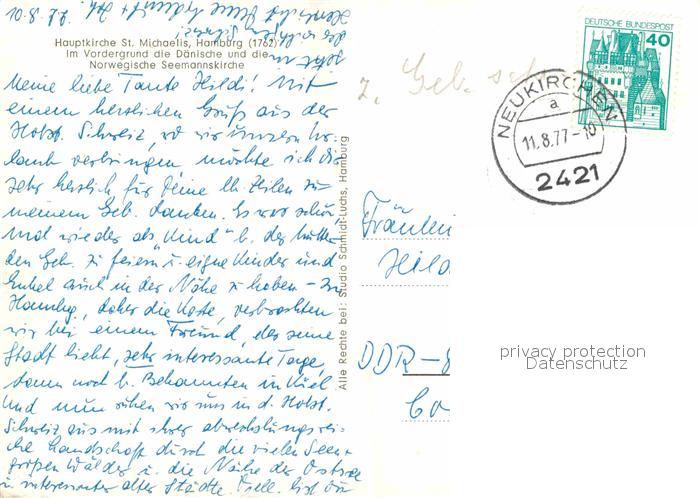 10.8.77.
Hauptkirche St. Michaelis, Hamburg (1762)
Im Vordergrund die Dänische und die
Norwegische Seemannskirche
Meine liebe Tante Hildi! Mit
einem herzlichen Gruß aus der
Holst. Schweiz, wo wir unseren Ur-
laub verbringen möchte ich dir
sehr herzlich für Deine lb. Zeilen zu
meinem Geb. danken. Es war schön
mal wieder als "Kind" b. der Mutter
den Geb. zu feiern u. eigne Kinder und
Enkel auch in der Nähe z. haben - In
Hambg., daher die Karte, verbrachten
wir bei einem Freund, der seine
Stadt liebt, sehr interessante Tage,
dann noch b. Bekannten in Kiel
Und nun ruhen wir uns in d. Holst.
Schweiz aus mit ihrer abwechslungsrei-
chen Landschaft durch die vielen Seen +
großen Wälder u. die Nähe der Ostsee
u. interessanter alter Städte.
Alle Rechte bei: Studio Schmidt-Luchs, Hamburg
z. Geb.
DEUTSCHE BUNDESPOST
40
NEUKIRCHEN
a
11.8.77-18
2421
Fräulein
Hild
DDR-
privacy protection
Datenschutz